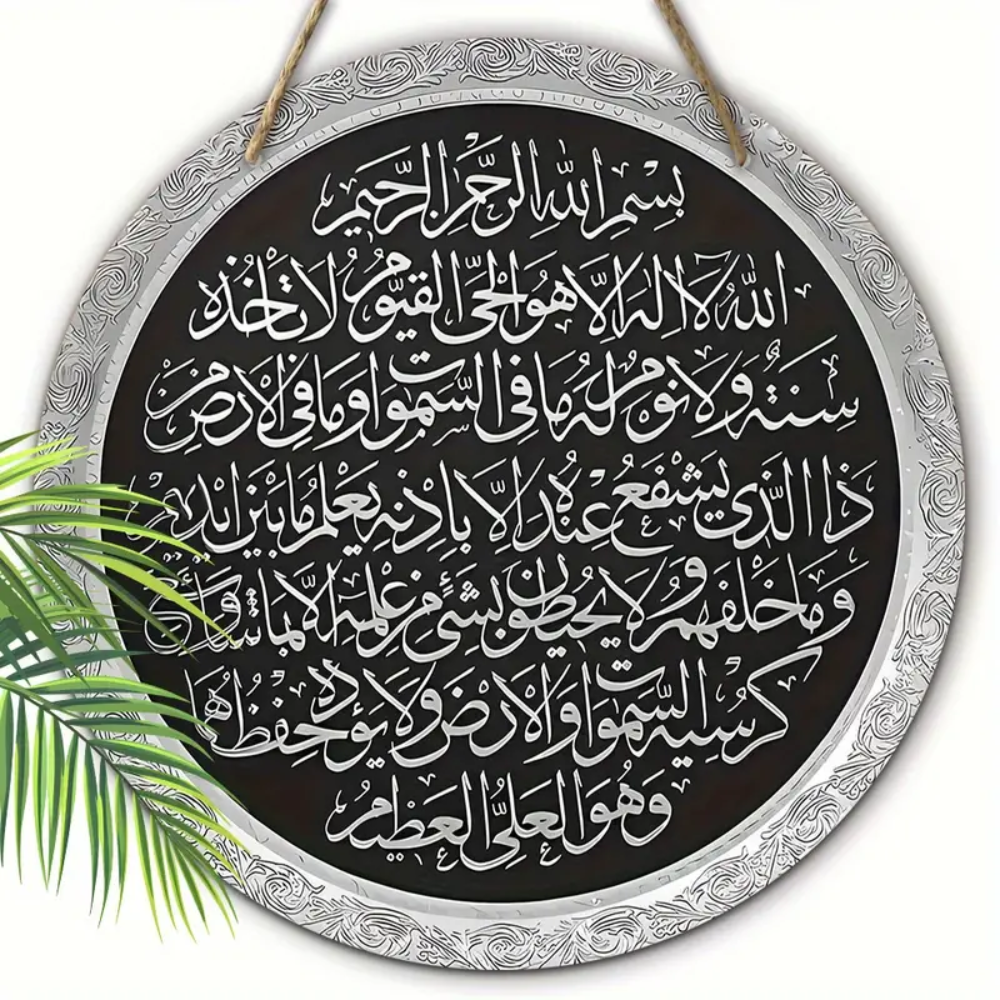 بسم الله الرحمن الرحيم
الله لا اله الا هو الحي القيوم لا تأخذه
سنة ولا نوم له ما في السموات وما في الارض من
ذا الذي يشفع عنده الا باذنه يعلم ما بين
وما خلفهم ولا يحيطون بشئ من علمه الا بما
كرسيه السموات والارض ولا يؤده حفظهما
وهو العلي العظيم